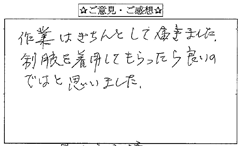 ☆ご意見・ご感想☆
作業はきちんとして届きました。
制服を着用してもらったら良いの
ではと思いました。